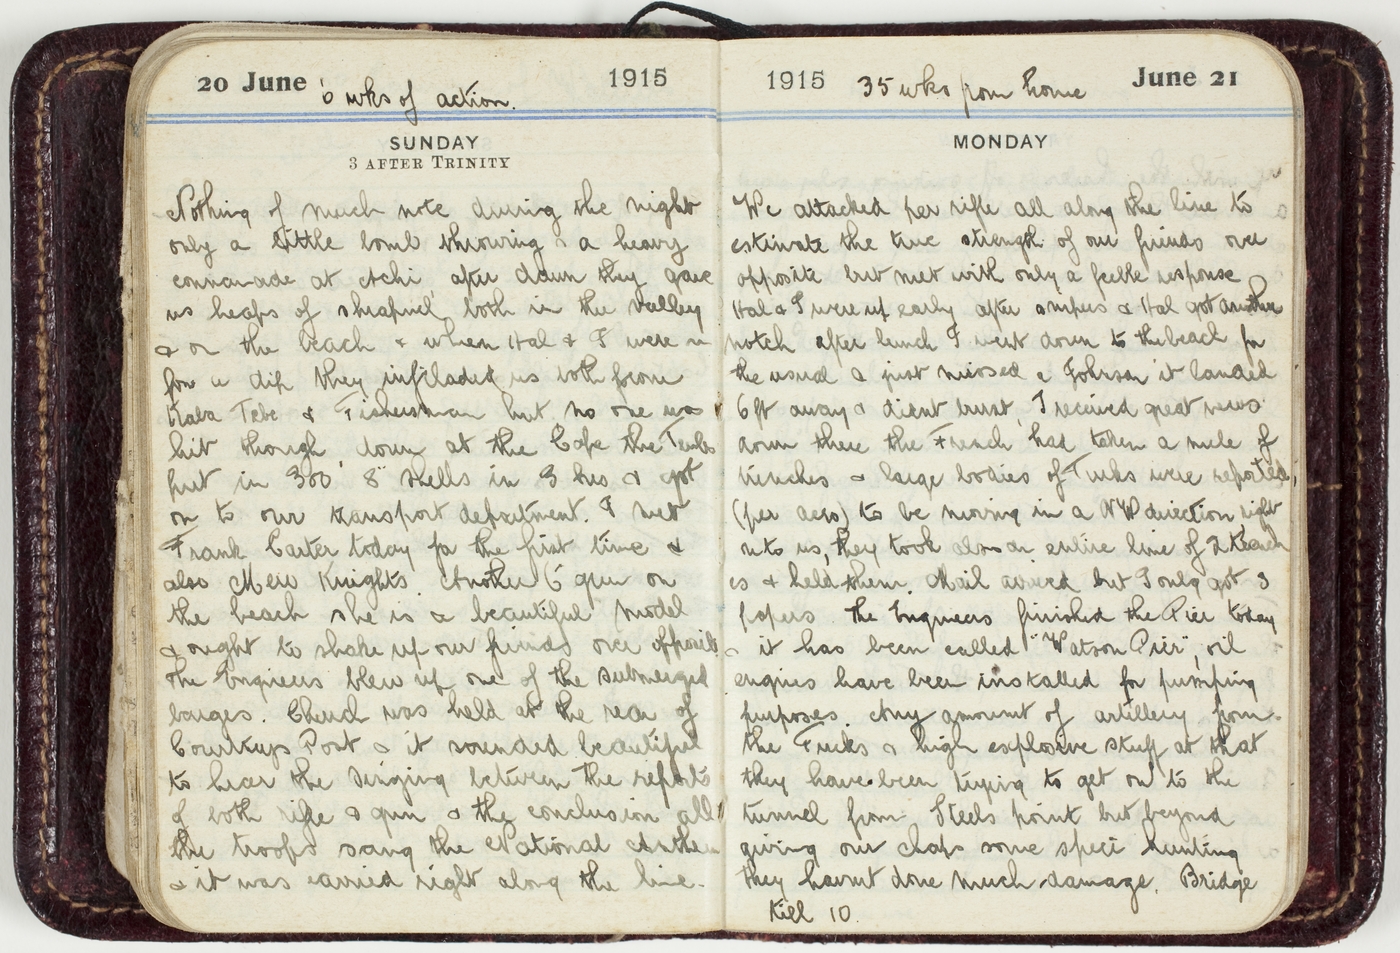 20 June 6 wks of action. 1915
SUNDAY
3 AFTER TRINITY
Nothing of much note during the night
only a little bomb throwing & a heavy
cannonade at Achi after dawn they gave
us heaps of shrapnel, both in the valley
& on the beach & when Hal & I were in
for a dip they infiladed us both from
Kaba Tebe & Fisherman but no one was
hit though, down at the Cape the Turks
put in 300 8" shells in 3 hrs & got
on to our transport department. I met
Frank Carter today for the first time &
also Merv Knights. Another 6" gun on
the beach she is a beautiful model
& ought to shake up our friends over opposite
The Engineers blew up one of the submerged
barges. Church was held at the rear of
Courtneys Post & it sounded beautiful
to hear the singing between the reports
of both rifle & gun & the conclusion all
the troops sang the National Anthem
& it was carried right along the line.
1915 35 wks from home June 21
MONDAY
We attacked per rifle all along the line to
estimate the true strength of our friends over
opposite but met with only a feeble response
Hal & I were up early after snipers & Hal got another
notch after lunch I went down to the beach for
the usual & just missed a Johnson it landed
6 ft away & didnt burst, I received great news
down there the French had taken a mile of
trenches & large bodies of Turks were reported,
(per aero) to be moving in a NW direction right
onto us, they took also an entire line of 2 trench
es & held them. Mail arrived but I only got 3
papers the Engineers finished the Pier today
& it has been called "Watson Pier", oil
engines have been installed for pumping
purposes. Any amount of artillery from
the Turks & high explosive stuff at that
they have been trying to get on to the
tunnel from Steels point but beyond
giving our chaps some speci hunting
they havnt done much damage. Bridge
till 10.